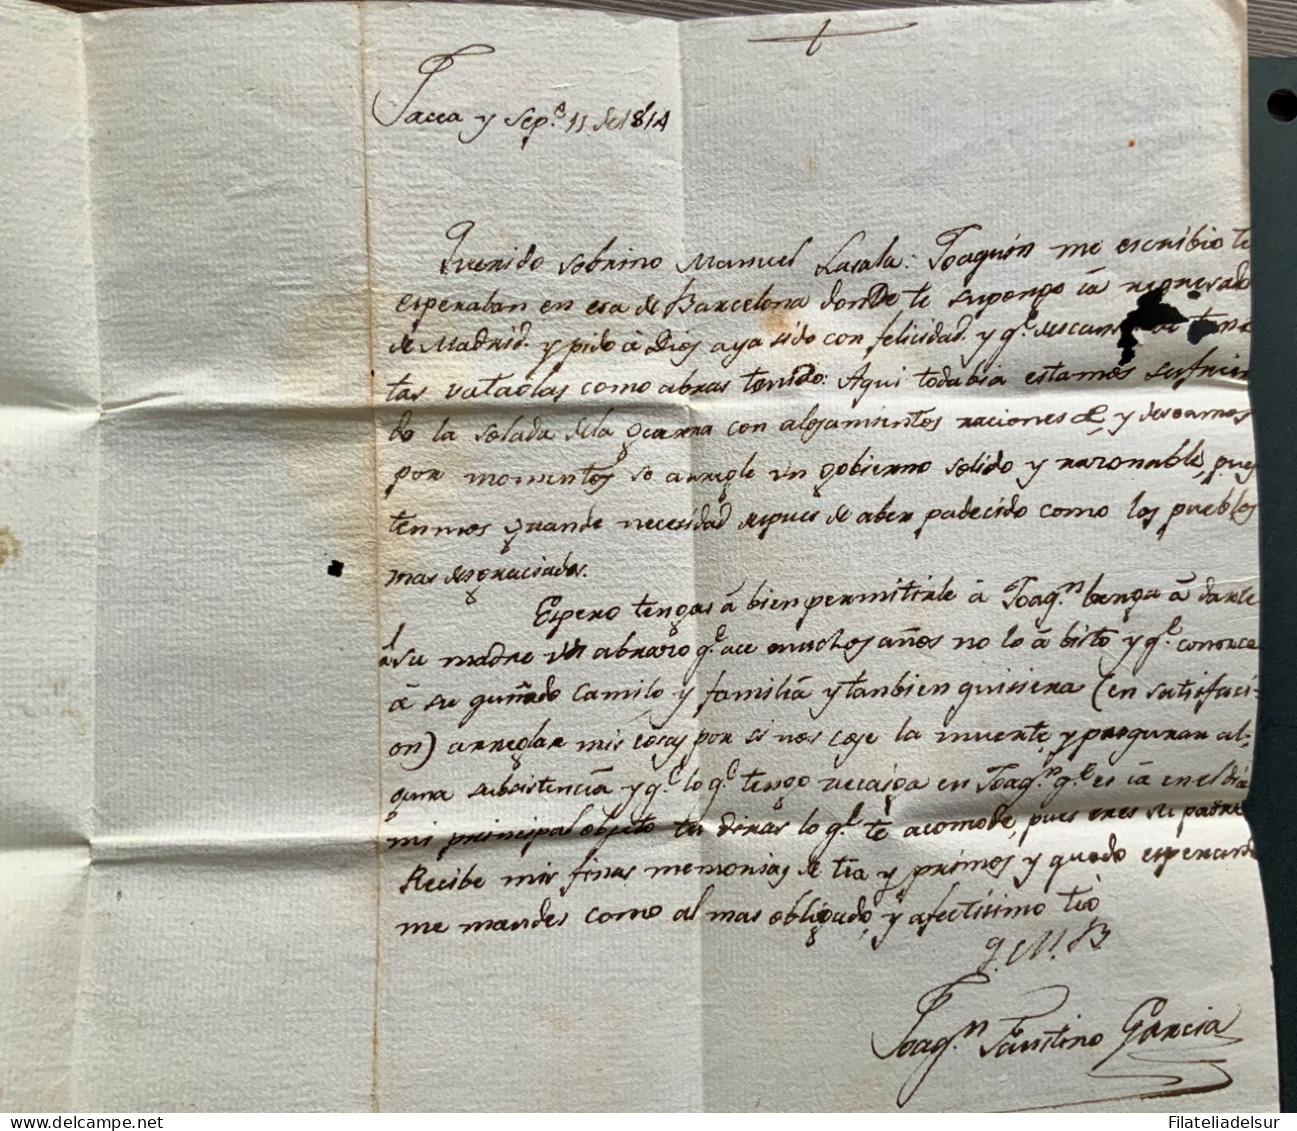 Jacca y Sep.e 11 de 1814
Querido Sobrino Manuel Lasala: Joaquin me escribio te
esperaban en esa de Barcelona donde te supongo ia regresado
de Madrid. y pido â Dios aya sido con felicidad. y q.e descanses de tan
tas vataolas como abras tenido: Aqui todabia estamos sufrien
do la solada dela Gcarra con alojamientos raciones &c, y deseamos
por momentos se arregle un gobierno solido y razonable, pues
tenmos grande necesidad despues de aber padecido como los pueblos
mas desgraciados.
Espero tengas â bien permitirle â Joaq.n benga â darle
â su madre un abrazo q.e ace muchos años no lo â bisto y q.e conozca
â su cuñado Camilo y familia y tanbien quisiera (en satisfaci-
on) arreglar mis cosas por si nos coje la muerte, y procurar al-
guna subsistencia y q.e lo q.e tengo recaiga en Joaq.n q.e es ia en el dia
mi principal objeto tu diras lo q.e te acomode, pues eres su padre
Recibe mis finas memorias de tia y primos y quedo esperando
me mandes como al mas obligado, y afectisimo tio
q. M. B.
Joaq.n Faustino Garcia
Filateliadelsur